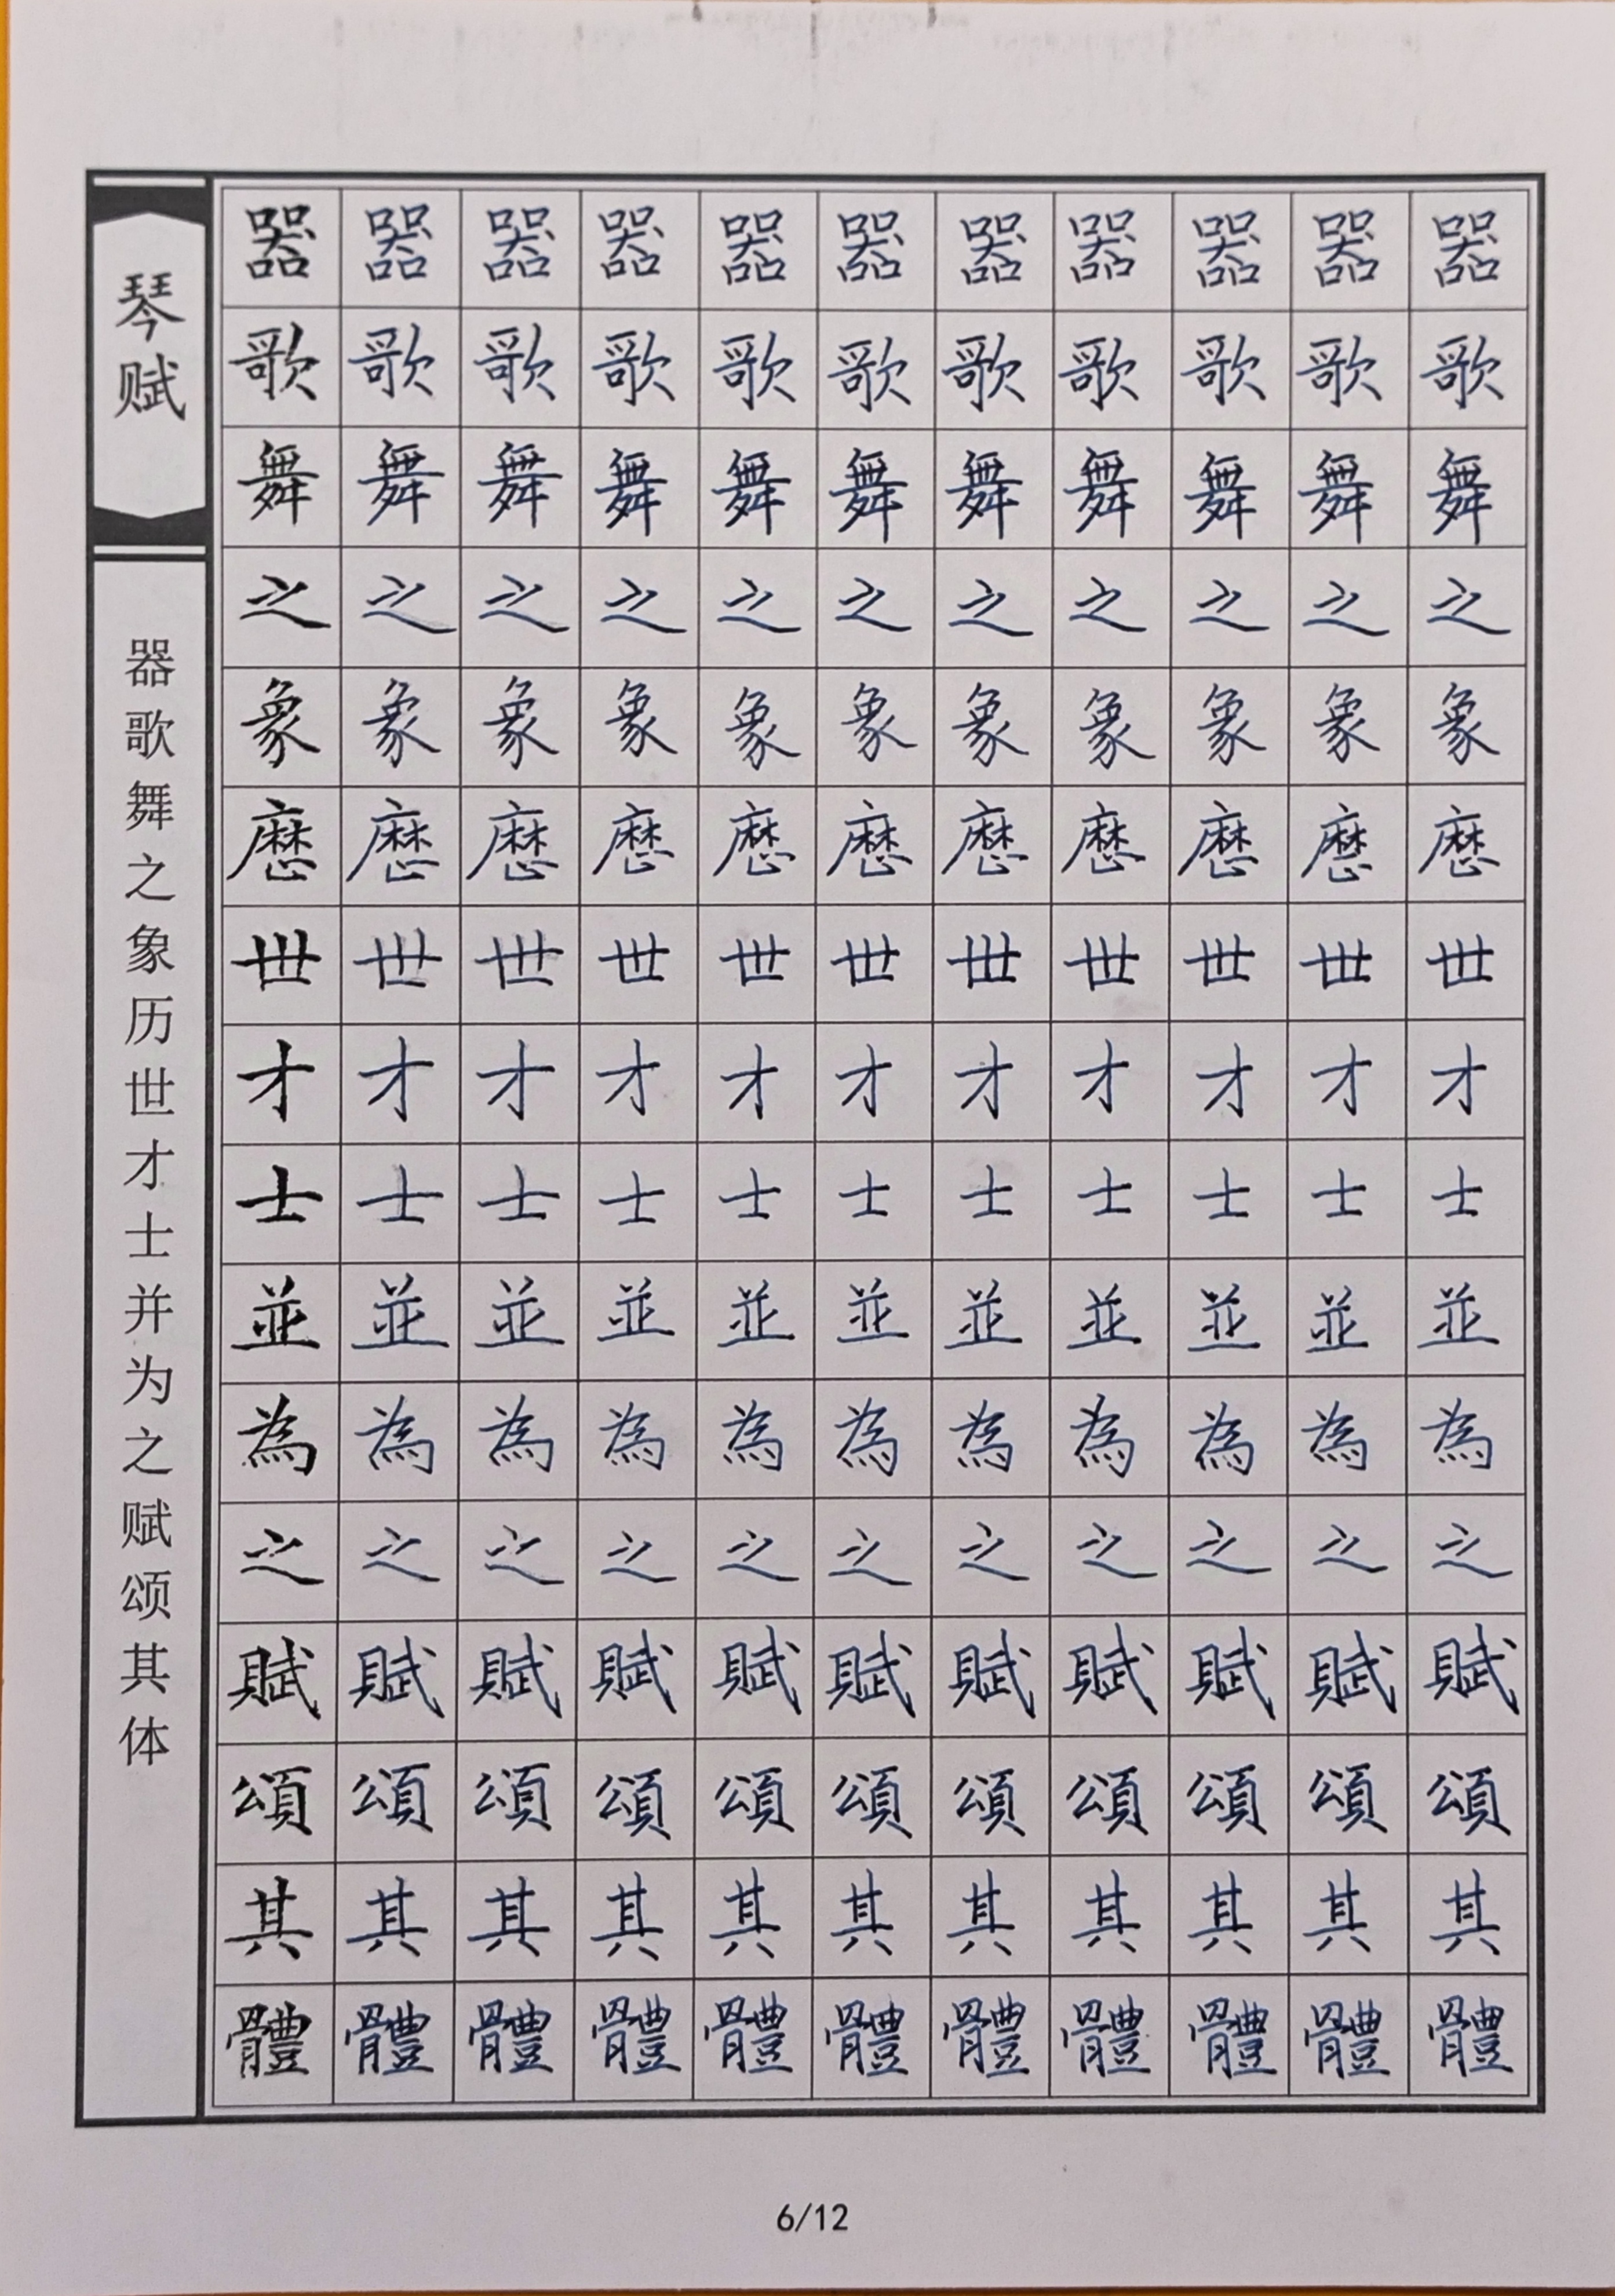 琴赋
器歌舞之象历世才士并为之赋颂其体
器器器器器器器器器器器
歌歌歌歌歌歌歌歌歌歌歌
舞舞舞舞舞舞舞舞舞舞舞
之之之之之之之之之之之
象象象象象象象象象象象
歷歷歷歷歷歷歷歷歷歷歷
世世世世世世世世世世世
才才才才才才才才才才才
士士士士士士士士士士士
並並並並並並並並並並並
為為為為為為為為為為為
之之之之之之之之之之之
賦賦賦賦賦賦賦賦賦賦賦
頌頌頌頌頌頌頌頌頌頌頌
其其其其其其其其其其其
體體體體體體體體體體體
6/12